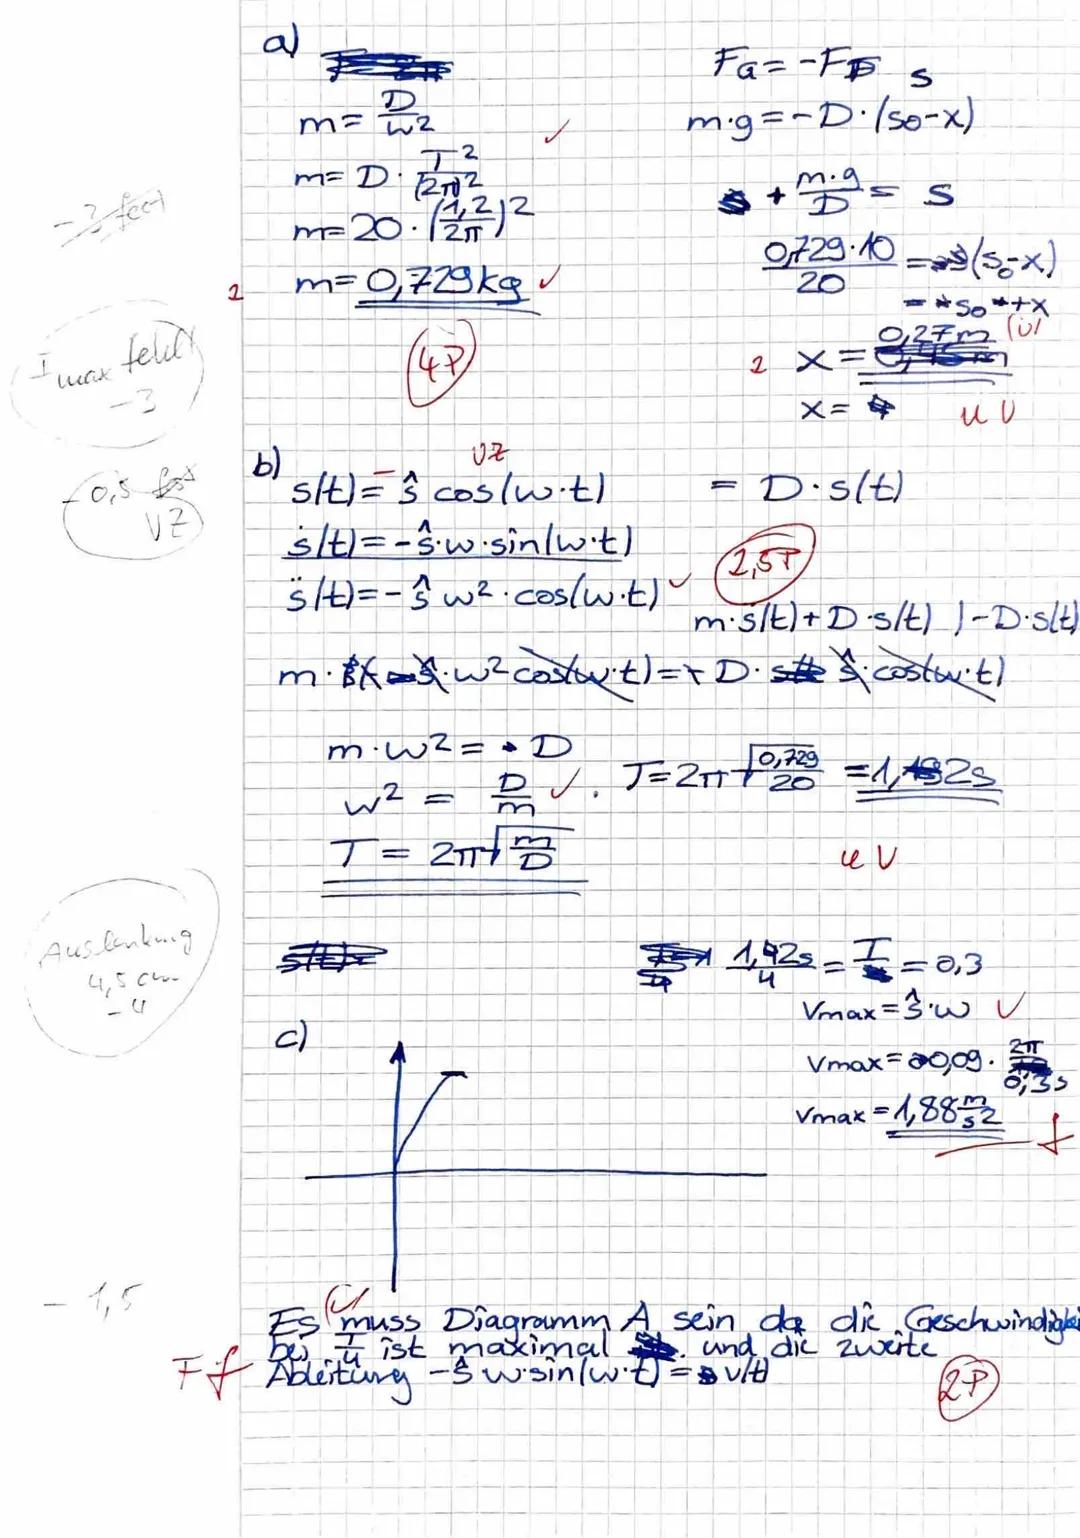 a)
m = D/w²
m = D · T²/(2π)²
m = 20 · (1,2/2π)²
m = 0,729kg
2
4P
FG = -FD s
m·g = -D·(s0-x)
+ m·g/D = s
0,729·10/20 = (s0-x)
= so + x
2 x = 0,27m (ü)
x =
u V
Imax fehlt
-3
b)
VZ
s(t) = - ŝ cos(w·t) = D·s(t)
ṡ(t) = -ŝ·w·sin(w·t)
s̈(t) = -ŝ w²·cos(w·t)
2,5P
-0,5
VZ
m·s̈(t) + D·s(t) | -D·s(t)
m· ·w² cos(w·t) = + D· ŝ·cos(w·t)
m·w² = D
w² = D/m
T = 2π√m/D
T = 2π√0,729/20 = 1,2s
u V
Auslenkung
4,5 cm
-4
1,2s/4 = T = 0,3
Vmax = ŝ·w
Vmax = 0,09 · 2π/0,3s
Vmax = 1,88 m/s2
f
c)
-1,5
Es muss Diagramm A sein da die Geschwindigkei
bei T/4 ist maximal und die zweite
F f Ableitung -ŝ w·sin(w·t) = v(t)
2P